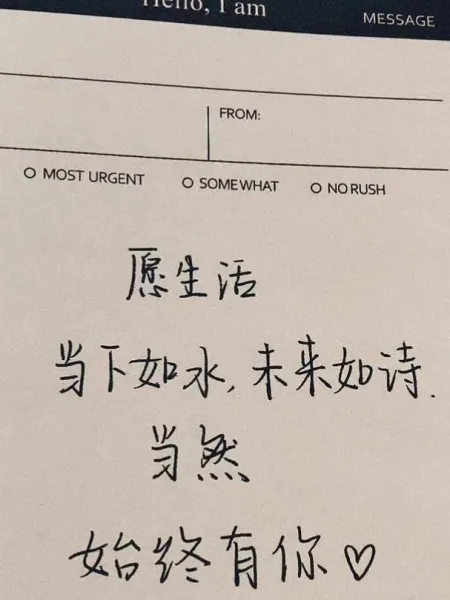 Hello, I am
MESSAGE
FROM:
O MOST URGENT O SOMEWHAT O NO RUSH
愿生活
当下如水,未来如诗.
当然
始终有你♡